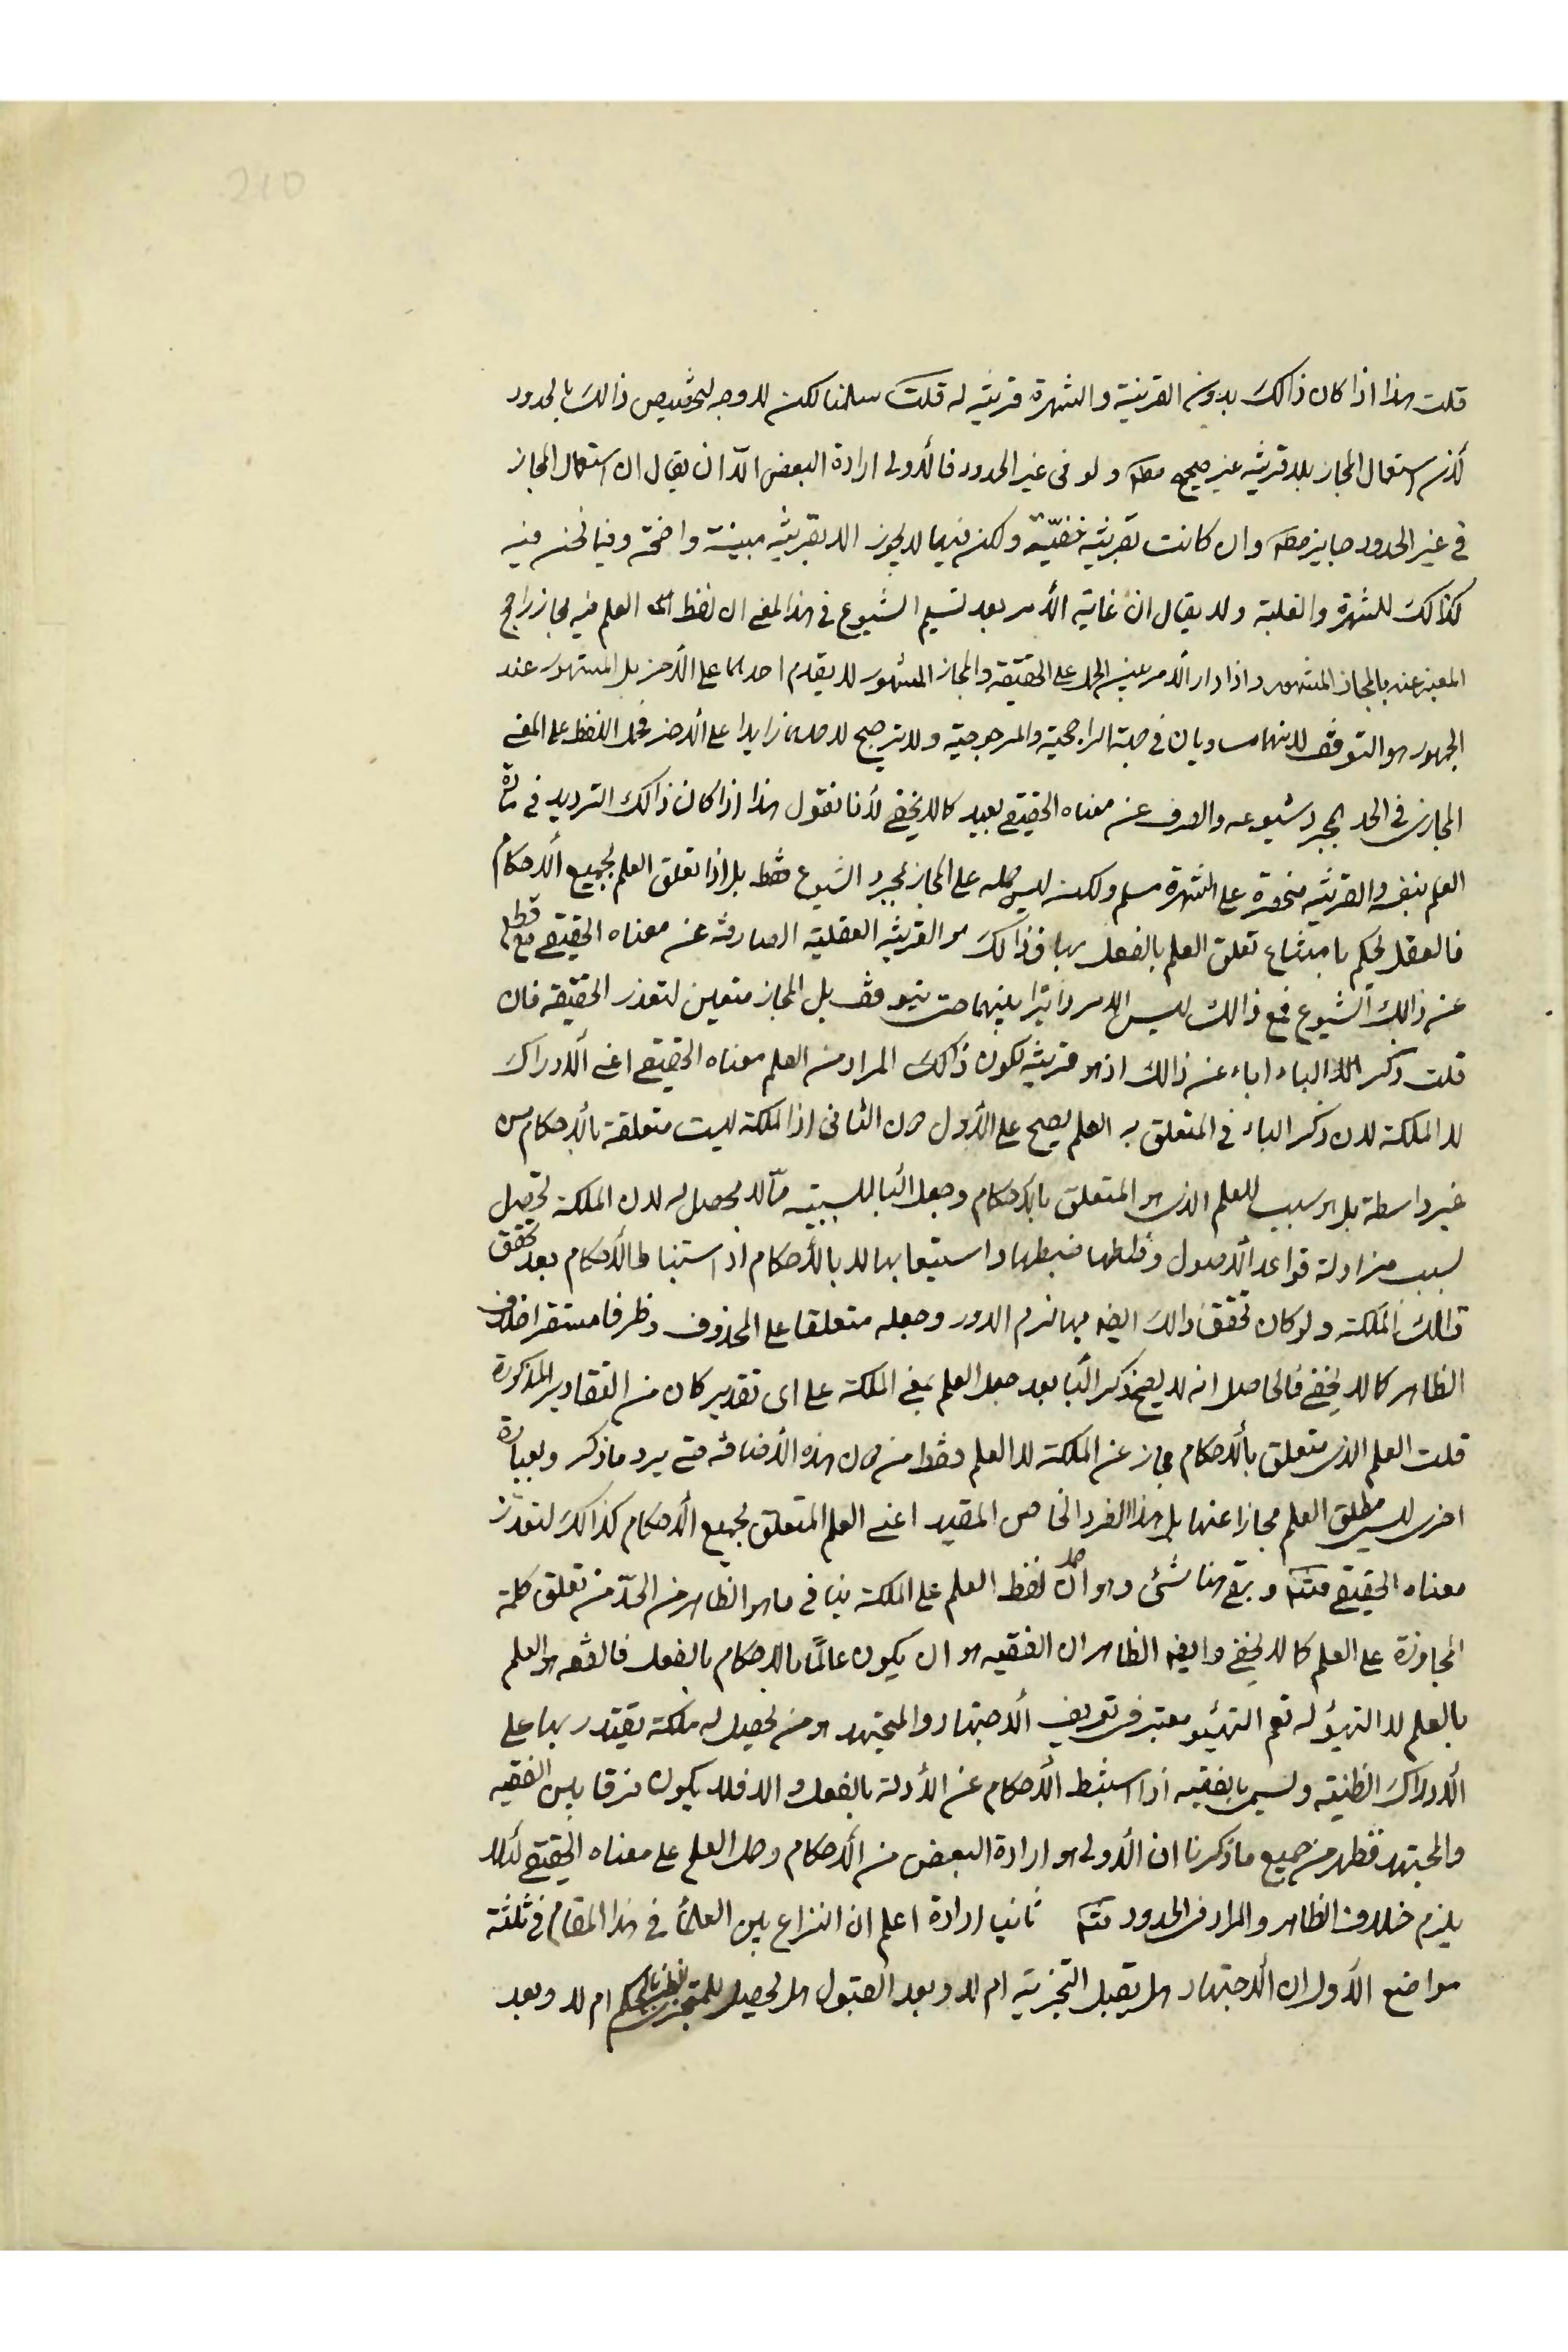 210
قلت هذا اذا كان ذالك بدون القرينة والشهرة قرينة له قلت سلمنا لكن لا وجه لتخصيص ذالك بالحدود
لأن استعمال المجاز بلا قرينة غير صحيح مطلقا ولو في غير الحدود فالأولى ارادة البعض الّا ان يقال ان استعمال المجاز
في غير الحدود جايز مط وان كانت بقرينة خفيّة ولكن فيها لا يجوز الا بقرينة مبينة واضحة وفيما نحن فيه
كذالك للشهرة والغلبة ولا يقال ان غاية الأمر بعد تسليم الشيوع في هذا المعنى ان لفظ العلم فيه مجاز راجح
المعبر عنه بالمجاز المشهور واذا دار الأمر بين الحمل على الحقيقة والمجاز المشهور لا يقدم احدهما على الأخر بل المشهور عند
الجمهور هو التوقف لانهما مساويان في جهة الراجحية والمرجوحية ولا ترجيح لاحدهما زايدا على الأخر فحمل اللفظ على المعنى
المجازي في الحد بمجرد شيوعه والصرف عن معناه الحقيقي بعيد كما لا يخفى لأنا نقول هذا اذا كان ذالك الترديد في مادة
العلم بنفسه والقرينة منحصرة على الشهرة مسلم ولكن ليس حمله على المجاز بمجرد الشيوع فقط بل اذا تعلق العلم بجميع الأحكام
فالعقل يحكم بامتناع تعلق العلم بالفعل بها فذالك هو القرينة العقلية الصارفة عن معناه الحقيقي مع قطع
عن ذالك الشيوع فمع ذالك ليس الامر دائرا بينهما حتى يتوقف بل المجاز متعين لتعذر الحقيقة فان
قلت ذكر الباء اباء عن ذالك اذ هو قرينة لكون ذالك المراد من العلم معناه الحقيقي اعني الأدراك
لا الملكة لان ذكر الباء في المتعلق به العلم يصح على الأول دون الثاني اذ الملكة ليست متعلقة بالأحكام من
غير واسطة بل هو سبب للعلم الذي هو المتعلق بالأحكام وجعل البا للسببية ممّا لا محصل له لان الملكة تحصل
بسبب مزاولة قواعد الأصول وضبطها واستيعابها لا بالأحكام اذ استنباط الأحكام بعد تحقق
تالك الملكة ولو كان تحقق ذالك ايضا بها لزم الدور وجعله متعلقا على المحذوف وظرفا مستقرا خلاف
الظاهر كما لا يخفى فالحاصل انه لا يصح ذكر البا بعد جعل العلم بمعنى الملكة على اى تقدير كان من التقادير المذكورة
قلت العلم الذي متعلق بالأحكام مجاز عن الملكة لا العلم فقط من دون هذه الأضافة حتى يرد ما ذكر وبعبارة
اخرى ليس مطلق العلم مجازا عنها بل هذا الفرد الخاص المقيد اعني العلم المتعلق بجميع الأحكام كذالك لتعذر
معناه الحقيقي وبقي هنا شئ وهو ان حمل لفظ العلم على الملكة ينافي ما هو الظاهر من الحدّ من تعلق كلمة
المجاوزة على العلم كما لا يخفى وايضا الظاهر ان الفقيه هو ان يكون عالمًا بالاحكام بالفعل فالفقه هو العلم
بالعلم لا التهيؤ له نعم التهيئو معتبر في تعريف الأجتهاد والمجتهد هو من يحصل له ملكة يقتدر بها على
الأدراك الظنية ويسمى بالفقيه اذا استنبط الأحكام عن الأدلة بالفعل والا فلا يكون فرقا بين الفقيه
والمجتهد فظهر من جميع ما ذكرنا ان الأولى هو ارادة البعض من الأحكام وحمل العلم على معناه الحقيقي لئلا
يلزم خلاف الظاهر والمراد في الحدود ثانيا ارادة اعلم ان النزاع بين العلمأ في هذا المقام في ثلثة
مواضع الأول ان الأجتهاد هل يقبل التجزية ام لا وبعد القبول هل يحصل للمتجزى ام لا وبعد